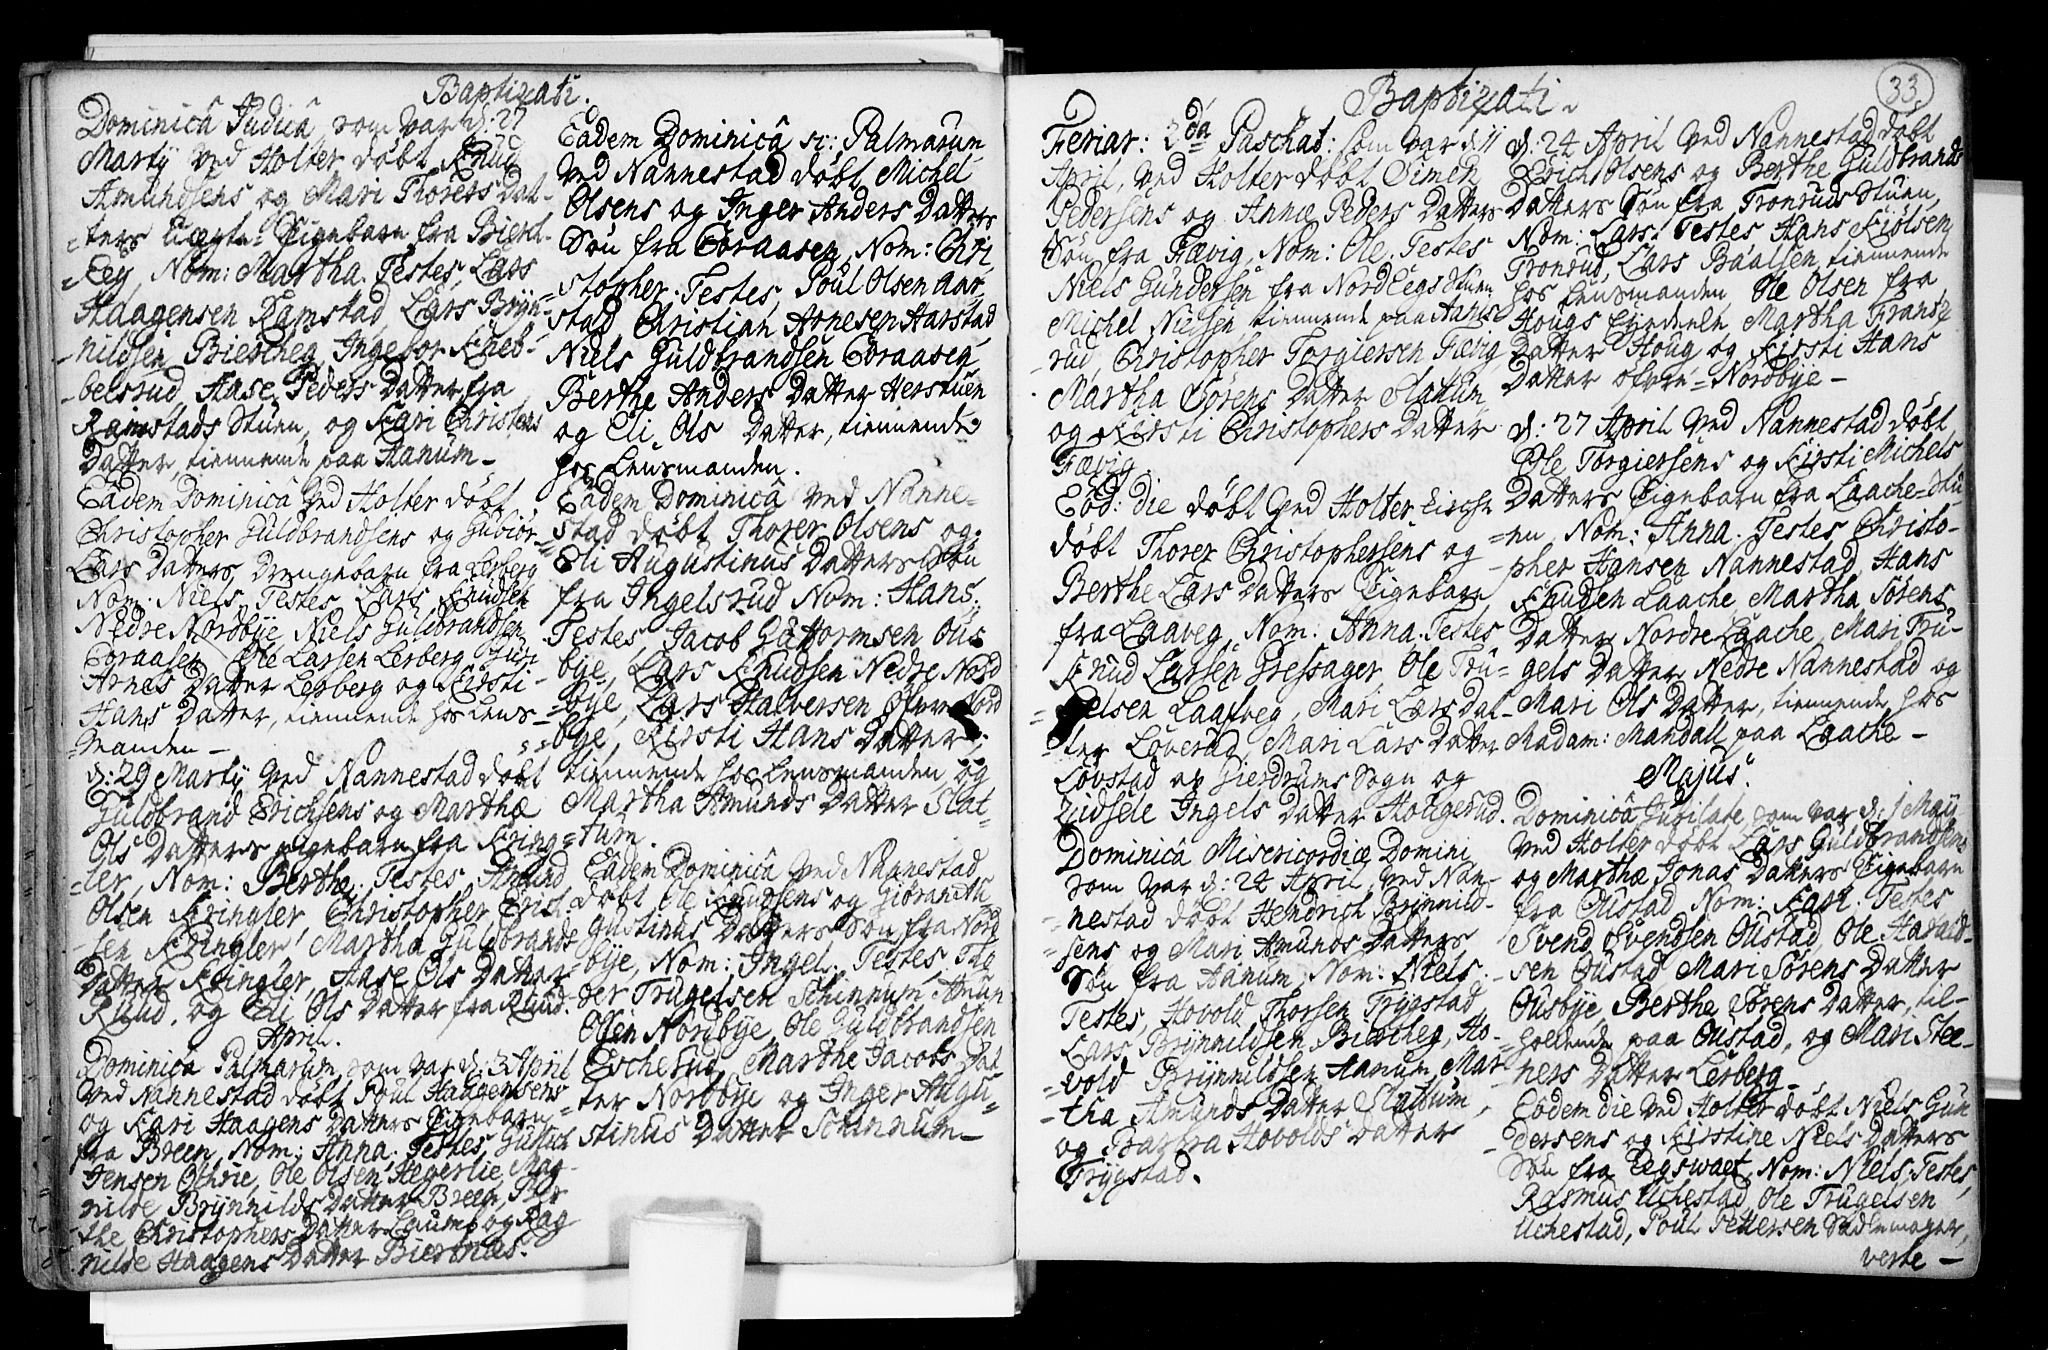 Baptizati.
Dominicâ Judicâ, som var d: 27
Martij ved Holter døbt Knud
Amundsens og Mari Thorers Dat-
=ters uægte Pigebarn fra Biersch-
=Eeg, Nom: Martha. Testes, Lars
Haagensen Ramstad, Lars Bryn-
nildsen Biescheg, Ingebor
=beesrud, Aase Peders Datter fra
Ramstads Stuen, og Kari Christens
Datter, tiennende paa Hanum-
Eadem Dominicâ ved Holter døbt
Christopher Guldbrandsens og Gubiør
Lars Datters Drengebarn fra Lerberg
Nom: Niels, Testes, Lars Knudsen
Nedre Nordbye, Niels Guldbrandsen
Coraasen, Ole Larsen Lerberg, Guri
Arnes Datter Lerberg og Kirsti
Hans Datter, tiennende hos Lens-
=manden -
d: 29 Martij ved Nannestad døbt
Guldbrand Erichsens og Marthæ
Ols Datters pigebarn fra Kring-
=ler, Nom: Berthe. Testes Amund
Olsen Kringler, Christopher Erich-
sen Kringler, Martha Guldbrands
Datter Kringler, Aase Ols Datter
Ruud, og Eli Ols Datter fra Ruud.
April.
Dominica Palmarum, som var d: 3 April
ved Nannestad døbt Poul Haagensens
og Kari Haagens Datters Pigebarn
fra Breen, Nom: Anna. Testes,
Jensen Othrie, Ole Olsen Hegerlie, Mag-
nilde Brynnilds Datter Breen, Ber
the Christophers Datter Laume og Rag
nilde Haagens Datter Biertnæs.
Eadem Dominicâ sc: Palmarum
ved Nannestad døbt Michel
Olsens og Inger Anders Datters
Søn fra Coraasen, Nom: Chri
=stopher. Testes, Poul Olsen Aar-
stad, Christian Arnesen Aarstad
Niels Guldbrandsen Coraaseg
Berthe Anders Datter Herstuen
og Eli Ols Datter, tiennende
hos Lensmanden.
Eadem Dominicâ ved Nanne=
=stad døbt Thorer Olsens og
Eli Augustinus Datters Søn
fra Ingelsrud Nom: Hans.
Testes, Jacob Guttormsen Ous
bye, Lars Knudsen Nedre Nord
=bye, Lars Halversen Øfvre Nord
bye, Kirsti Hans Datter,
tiennende hos Lensmanden og
Martha Amunds Datter Slat-
=tum.
Eadem Dominicâ ved Nannestad
døbt Ole Knudsens og Giøran Au
gustinus Datters Søn fra Nord
bye, Nom: Ingel. Testes
der Trugelsen Schinnum, Amun
Olsen Nordbye, Ole Guldbrandsen
Eschesud, Marthe Jacobs Dat
=ter Nordbye og Inger Augu-
stinus Datter Schinnum-
Baptizati.
33.
Feriar: 2da Paschat: som var d 11
April, ved Holter døbt Simen
Pedersens og Annæ Peders Datters
Søn fra Fævig, Nom: Ole. Testes
Niels Gundersen fra NordEegs Stuen
Michel Nielsen tiennende paa Aams
rud, Christopher Torgiersen Fævig
Martha Sørens Datter Slatum
og Kirsti Christophers Datter
Fævig.
Eod: die døbt ved Holter Kirche
døbt Thorer Christophersens og
Berthe Lars Datters Pigebarn
fra Laaveg, Nom: Anna. Testes
Knud Larsen Gressager, Ole Tru-
=gelsen Laafveg, Mari Lars Dat-
=ter Løverud, Mari Lars Datter
Løvstad af Gierdrums Sogn og
Zidsele Ingels Datter Hougerud.
Dominicâ Misericordiæ Domini
som var d: 24 April, ved Nan-
=nestad døbt Hendrich Brinnild-
=sens og Mari Amunds Datters
Søn fra Hanum, Nom: Niels.
Testes, Hovold Thorsen Trygstad
Lars Brynnildsen Biescheg, Ho-
=vold Brynnildsen Hanum, Mar
=tha Amunds Datter Slattum,
og Barbra Hovolds Datter
Trygstad.
d: 24 April ved Nannestad døbt
Erich Olsens og Berthe Guldbrands
Datters Søn fra Tronruds Stuen,
Nom: Lars. Testes Hans Kiølsen
Tronrud, Lars Baalsen, tiennende
hos Lensmanden, Ole Olsen fra
Hougs Eyedeele, Martha Frands
Datter Houg og Kirsti Hans
Datter øfvre=Nordbye-
d: 27 April ved Nannestad døbt
Ole Torgiersens og Kirsti Michels
Datters Pigebarn fra Laache=Stu
=en, Nom: Anna. Testes Christo-
-pher Hansen Nannestad, Hans
Knudsen Laache, Martha Sørens
Datter Nordre Laache, Mari Tru-
-gels Datter Nedre Nannestad og
Mari Ols Datter, tiennende hos
Madam: Mandall paa Laache-
Majus.
Dominicâ Jubilate, som var d: 1 Maij
ved Holter døbt Lars Guldbrandsens
og Marthæ Jonas Datters Pigebarn
fra Oustad, Nom: Kari. Testes
Svend Svendsen Oustad, Ole Harald-
-sen Oustad, Mari Sørens Datter
Ousbye, Berthe Sørens Datter, til-
=holdende paa Oustad, og Mari Stee-
-ners Datter Lerberg-
Eodem die ved Holter døbt Niels Gun
dersens og Kirstine Niels Datters
Søn fra Eegswaet, Nom: Niels, Testes,
Rasmus Uchestad, Ole Trugelsen
Uchestad, Poul Pettersen Sadlemager,
verte-